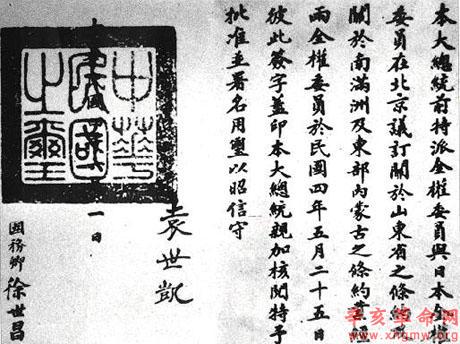 本大總統前特派全權委員與日本全權
委員在北京議訂關於山東省之條約及
關於南滿洲及東部內蒙古之條約業經
兩全權委員於民國四年五月二十五日
彼此簽字蓋印本大總統親加核閱特予
批准並署名用璽以昭信守
袁世凱
中華民國之璽
一日
國務卿 徐世昌
辛亥革命网
www.xhgmw.org